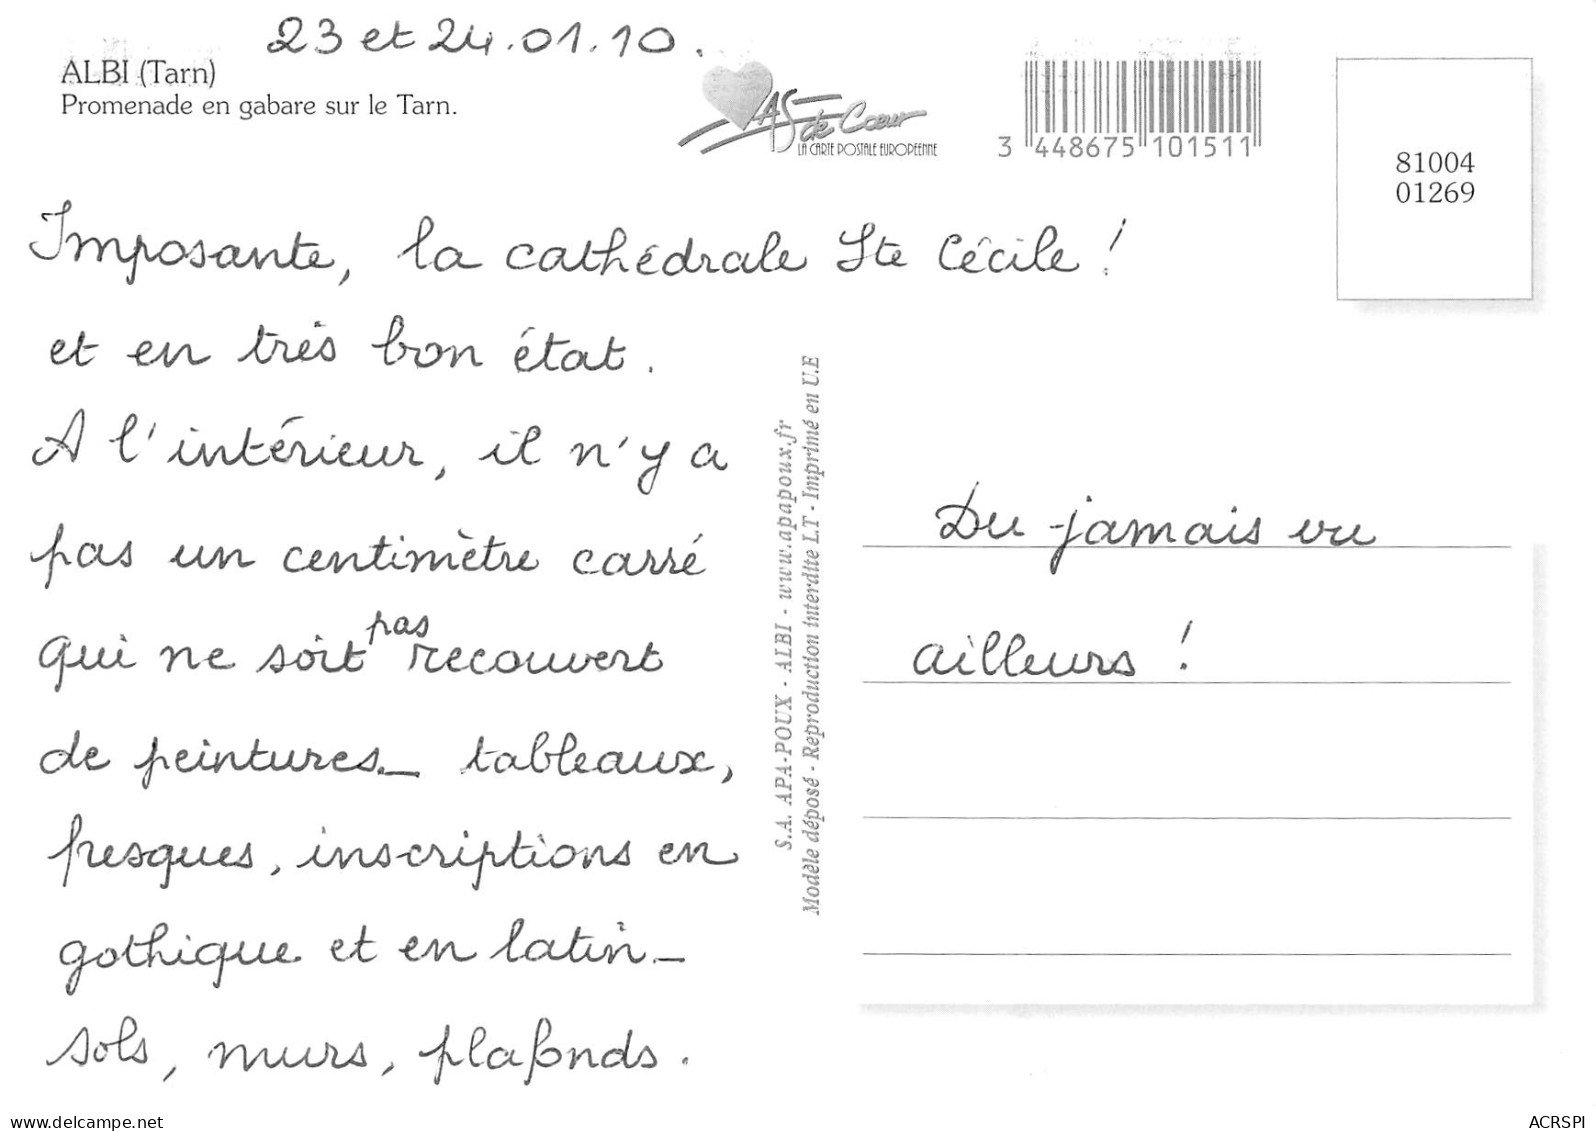 23 et 24.01.10.
ALBI (Tarn)
Promenade en gabare sur le Tarn.
AS de Cœur
LA CARTE POSTALE EUROPÉENNE
3 448675 101511
81004
01269
Imposante, la cathédrale Ste Cécile !
et en très bon état.
A l'intérieur, il n'y a
pas un centimètre carré
qui ne soit pas recouvert
de peintures_ tableaux,
fresques, inscriptions en
gothique et en latin_
sols, murs, plafonds.
S.A. APA-POUX - ALBI - www.apapoux.fr
Modèle déposé - Reproduction interdite LT - Imprimé en U.E
Du jamais vu
ailleurs !
www.delcampe.net
ACRSPI